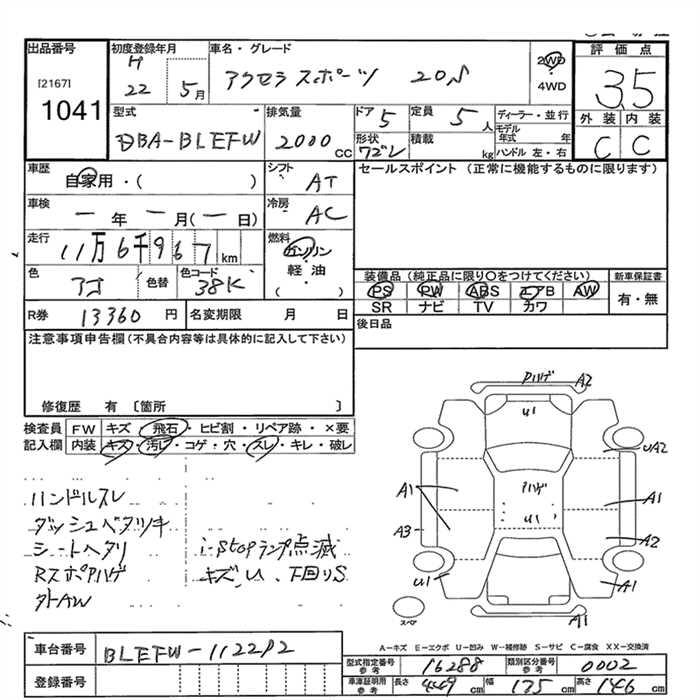 出品番号
[2167]
1041
初度登録年月
H
22 5月
車名・グレード
アクセラスポーツ 20S
2WD
4WD
評価点
3.5
外装 内装
C C
型式
DBA-BLEFW
排気量
2000 CC
ドア 5
定員 5 人
ディーラー・並行
モデル年式 年
ハンドル 左・右
形状
ワゴン
積載
kg
車歴
自家用・( )
シフト
AT
セールスポイント (正常に機能するものに限ります)
車検
一 年 一 月(一 日)
冷房
AC
走行
11万6千967 km
燃料
ガソリン
軽油
( )
色
アオ
色替
色コード
38K
装備品 (純正品に限り○をつけてください)
PS PW ABS エアB AW
SR ナビ TV カワ
新車保証書
有・無
R券 13360 円
名変期限 月 日
後日品
注意事項申告欄 (不具合内容等は具体的に記入して下さい)
修復歴 有 〔箇所 〕
検査員記入欄
FW キズ・飛石・ヒビ割・リペア跡・×要
内装 キズ・汚レ・コゲ・穴・スレ・キレ・破レ
ハンドルスレ
ダッシュベタツキ
シートヘタリ
Rスポハゲ
外AW
i-stopランプ点滅
キズ、U、下回りS
Pハゲ A2
U1
UA2
A1
Pハゲ
U1
A1
A3
A2
U1
A1
スペア
A1
A-キズ E-エクボ U-凹み W-補修跡 S-サビ C-腐食 XX-交換済
車台番号
BLEFW-112292
登録番号
型式指定番号
参考
16288
類別区分番号
参考
0002
車庫証明用
参考
長さ 449 cm 幅 175 cm 高さ 146 cm